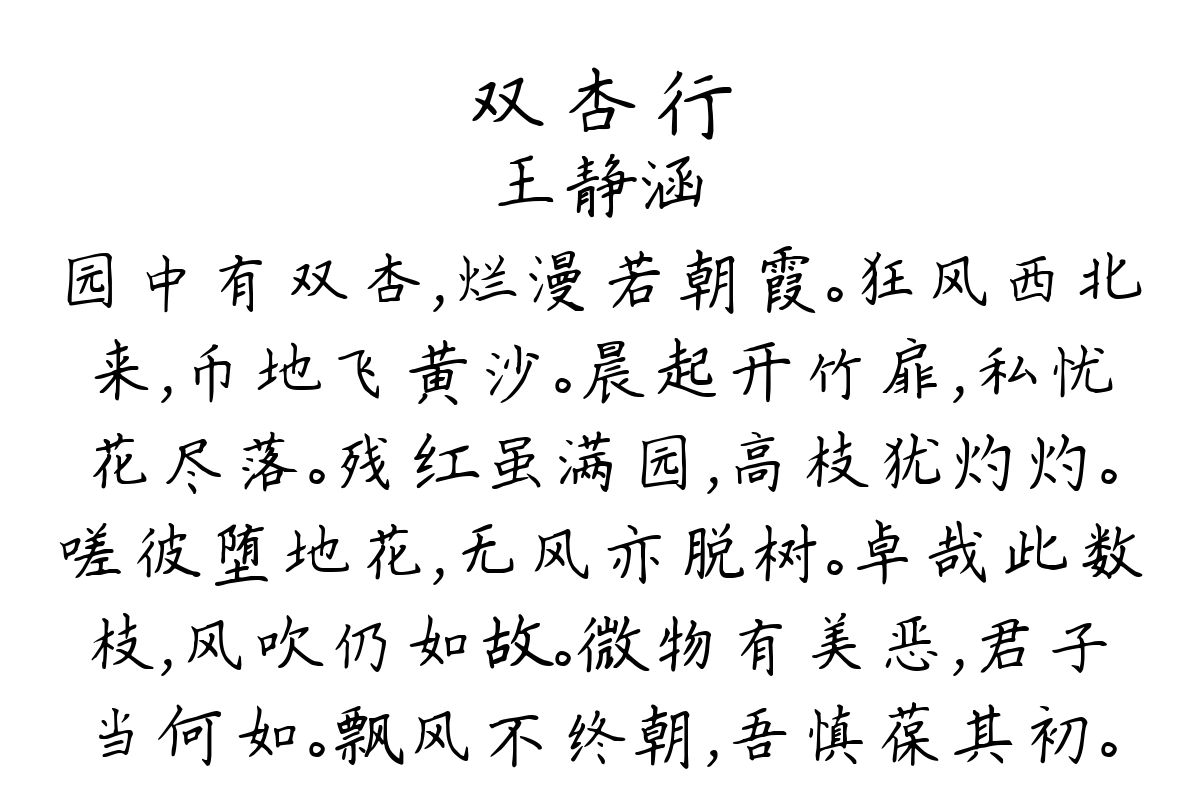 双杏行
王静涵
园中有双杏,烂漫若朝霞。狂风西北
来,币地飞黄沙。晨起开竹扉,私忧
花尽落。残红虽满园,高枝犹灼灼。
嗟彼堕地花,无风亦脱树。卓哉此数
枝,风吹仍如故。微物有美恶,君子
当何如。飘风不终朝,吾慎葆其初。